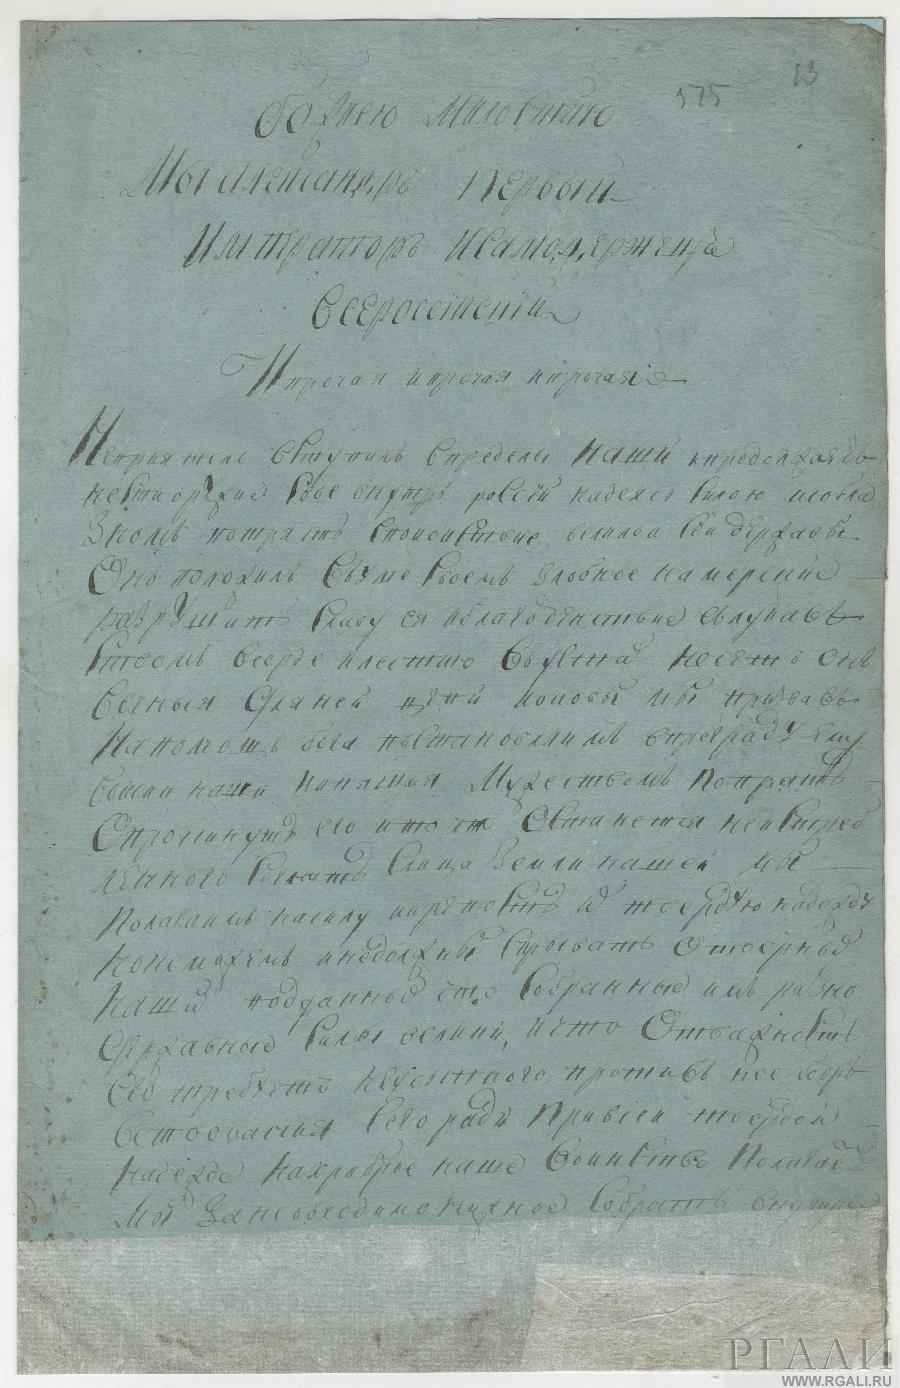 575 13
Божиею Милостию
Мы Александръ Первый
Императоръ исамодержецъ
Всеросѣиский
И прочая и прочая и прочая
Неприятель вступилъ впределы наши ипродолжаетъ
нести оружие свое внутрь росѣии надеясь силою исобла
зномъ потрясть спокойствие великой сей державы
Онъ положилъ въуме своемъ злобное намерение
разрушить славу ея иблагоденствие сълукавъ
ствомъ всерде илестию въустах несетъ онъ
вечныя дляней цепи иоковы мы призвавъ
напомощь бога поставляемъ впреграду ему
войски наши кипящия мужествомъ попрать
опрокинуть его ито что останется неистреб
леннаго согнать слица земли нашей мы
полагаемъ насилу икрепость их твердую надежду
нонеможемъ инедолжны скрывать отверныхъ
наших подданных что собранные имъ разно
державные силы велики, ичто отважность
его требуетъ неусыпного противъ нее бодръ
ствования сего ради привсей твердой
надежде нахраброе наше воинство полагаемъ
мы занеобходимо нужное собрать внутри
РГАЛИ
WWW.RGALI.RU